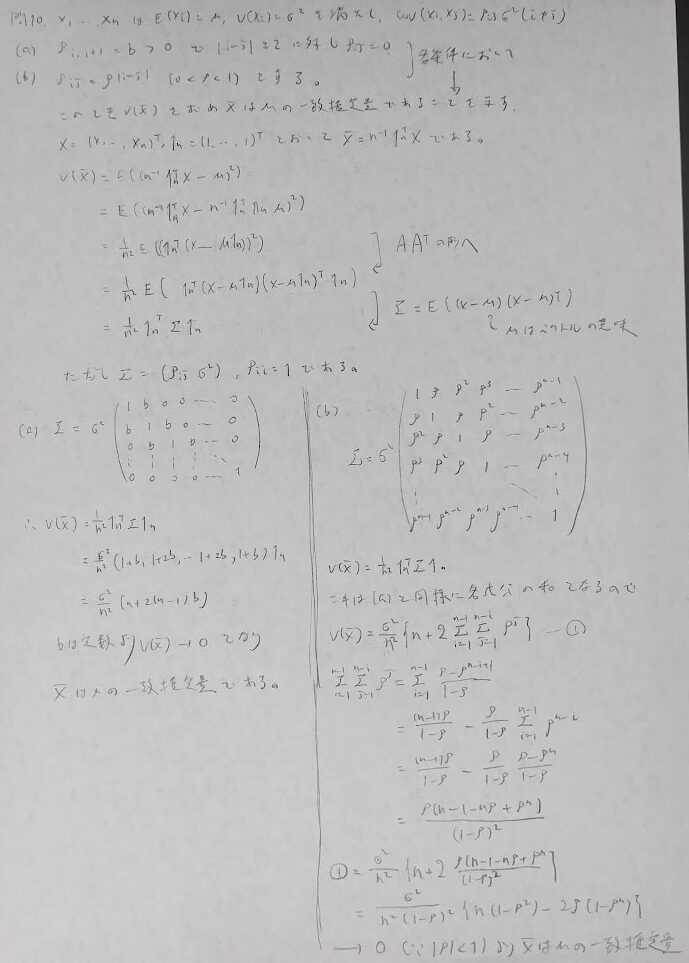 問10. x₁, … xₙ は E(xᵢ)=μ, V(xᵢ)=σ² を満たし, cov(xᵢ, xⱼ)=ρᵢⱼσ² (i≠j)
(a) ρᵢ,ᵢ₊₁ = b > 0 で |i-j| ≧ 2 に対し ρᵢⱼ=0.
(b) ρᵢⱼ = ρ^{|i-j|} (0<ρ<1) とする。
各条件において
このとき V(x̄) を求め x̄ は μ の一致推定量であることを示す.
X = (x₁, …, xₙ)ᵀ, 1ₙ = (1, …, 1)ᵀ とおいて x̄ = n⁻¹1ₙᵀX である。
V(x̄) = E((n⁻¹1ₙᵀX - μ)²)
= E((n⁻¹1ₙᵀX - n⁻¹1ₙᵀ1ₙμ)²)
= 1/n² E((1ₙᵀ(X - μ1ₙ))²)
AAᵀの形へ
= 1/n² E(1ₙᵀ(X-μ1ₙ)(X-μ1ₙ)ᵀ1ₙ)
= 1/n² 1ₙᵀΣ1ₙ
Σ = E((X-μ)(X-μ)ᵀ)
μはベクトルの意味
ただし Σ = (ρᵢⱼσ²), ρᵢᵢ=1 である。
(a) Σ = σ²
1 b 0 0 … 0
b 1 b 0 … 0
0 b 1 b … 0
⋮ ⋮ ⋮ ⋮
0 0 0 0 … 1
∴ V(x̄) = 1/n² 1ₙᵀΣ1ₙ
= σ²/n² (1+b, 1+2b, … 1+2b, 1+b)1ₙ
= σ²/n² (n+2(n-1)b)
bは定数より V(x̄) → 0 となり
x̄はμの一致推定量である。
(b)
Σ = σ²
1 ρ ρ² ρ³ … ρⁿ⁻¹
ρ 1 ρ ρ² … ρⁿ⁻²
ρ² ρ 1 ρ … ρⁿ⁻³
ρ³ ρ² ρ 1 … ρⁿ⁻⁴
⋮ ⋱ ⋮
ρⁿ⁻¹ ρⁿ⁻² ρⁿ⁻³ ρⁿ⁻⁴ … 1
V(x̄) = 1/n² 1ₙᵀΣ1ₙ
これは(a)と同様に各成分の和となるので
V(x̄) = σ²/n² {n + 2 Σ_{i=1}^{n-1} Σ_{j=1}^{n-i} ρʲ} … ①
Σ_{i=1}^{n-1} Σ_{j=1}^{n-i} ρʲ = Σ_{i=1}^{n-1} (ρ-ρ^{n-i+1})/(1-ρ)
= (n-1)ρ/(1-ρ) - ρ/(1-ρ) Σ_{i=1}^{n-1} ρ^{n-i}
= (n-1)ρ/(1-ρ) - ρ/(1-ρ) (ρ-ρⁿ)/(1-ρ)
= ρ(n-1-nρ+ρⁿ)/(1-ρ)²
① = σ²/n² {n + 2 ρ(n-1-nρ+ρⁿ)/(1-ρ)²}
= σ²/(n²(1-ρ)²) {n(1-ρ²) - 2ρ(1-ρⁿ)}
→ 0 (∵ |ρ|<1) より x̄はμの一致推定量